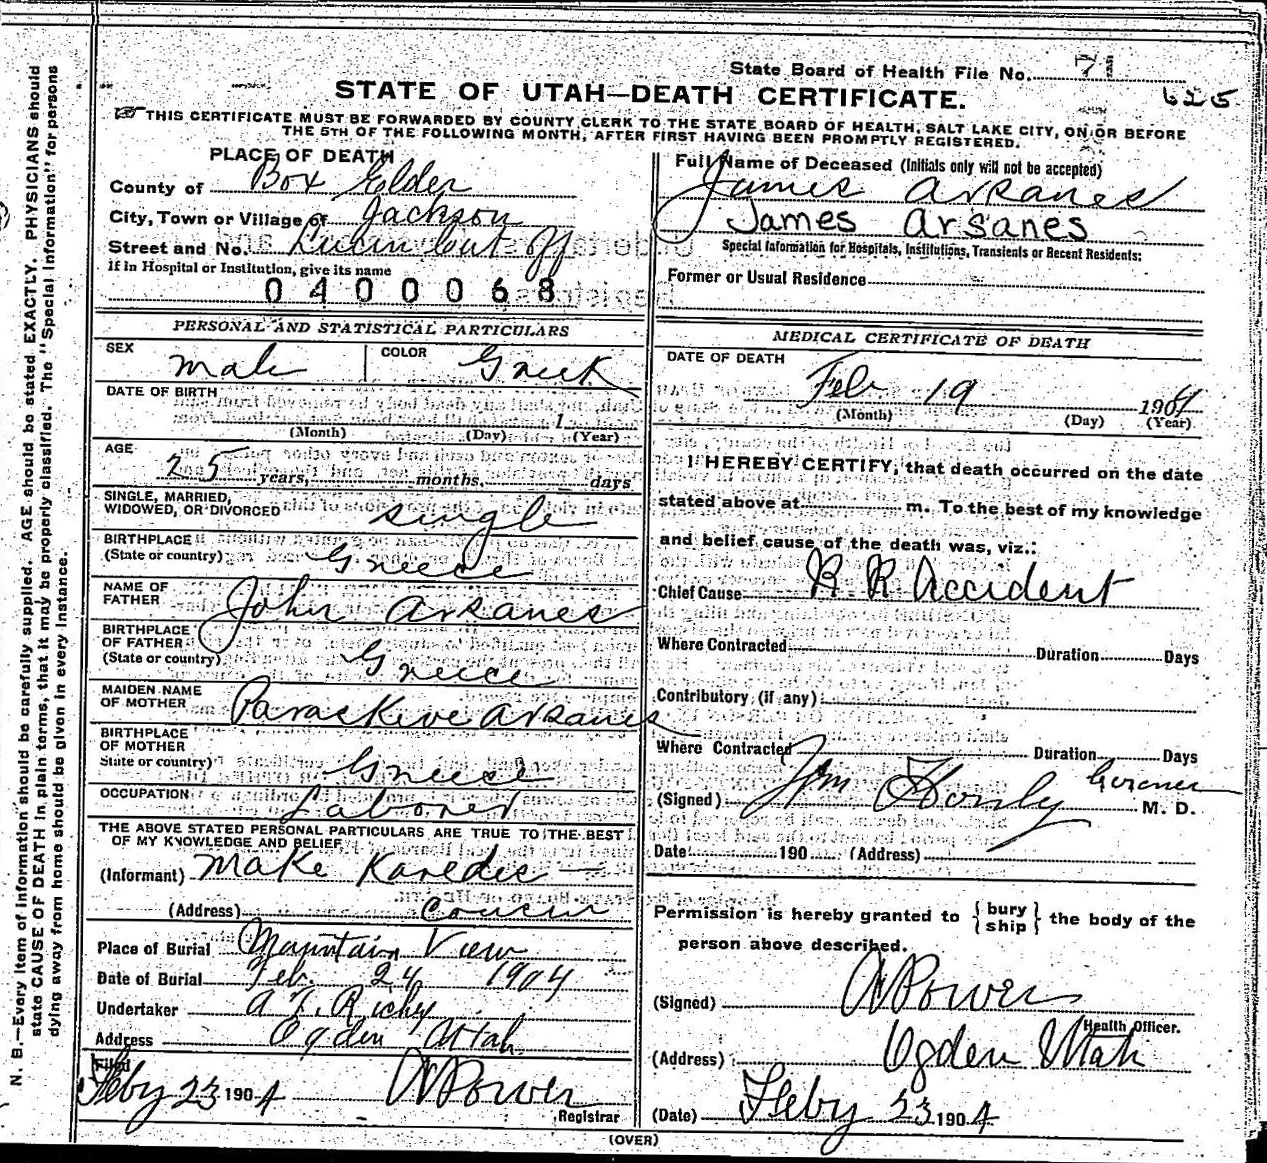 State Board of Health File No. 71
625
STATE OF UTAH—DEATH CERTIFICATE.
THIS CERTIFICATE MUST BE FORWARDED BY COUNTY CLERK TO THE STATE BOARD OF HEALTH, SALT LAKE CITY, ON OR BEFORE
THE 5TH OF THE FOLLOWING MONTH, AFTER FIRST HAVING BEEN PROMPTLY REGISTERED.
PLACE OF DEATH
County of Box Elder
City, Town or Village of Jackson
Street and No. Lucin Cut Off
If in Hospital or Institution, give its name
0400068
Full Name of Deceased (Initials only will not be accepted)
James Arsanes
James Arsanes
Special Information for Hospitals, Institutions, Transients or Recent Residents:
Former or Usual Residence
PERSONAL AND STATISTICAL PARTICULARS
SEX male COLOR Greek
DATE OF BIRTH
1
(Month) (Day) (Year)
AGE
25 years, months, days
SINGLE, MARRIED,
WIDOWED, OR DIVORCED single
BIRTHPLACE
(State or country) Greece
NAME OF
FATHER John Arsanes
BIRTHPLACE
OF FATHER
(State or country) Greece
MAIDEN NAME
OF MOTHER Paraskeve Arsanes
BIRTHPLACE
OF MOTHER
State or country) Greece
OCCUPATION Laborer
THE ABOVE STATED PERSONAL PARTICULARS ARE TRUE TO THE BEST
OF MY KNOWLEDGE AND BELIEF
(Informant) Make Karedes
(Address) Cousin
Place of Burial Mountain View
Date of Burial Feb. 24 1904
Undertaker
Address Ogden Utah
Filed
Feby 23 1904 Power
Registrar
MEDICAL CERTIFICATE OF DEATH
DATE OF DEATH
Feb 19 1904
(Month) (Day) (Year)
I HEREBY CERTIFY, that death occurred on the date
stated above at m. To the best of my knowledge
and belief cause of the death was, viz.:
Chief Cause R. R. Accident
Where Contracted Duration Days
Contributory (if any)
Where Contracted Duration Days
(Signed) Wm M. D.
Date 190 (Address)
Permission is hereby granted to { bury
ship } the body of the
person above described.
(Signed) Power
Health Officer.
(Address) Ogden Utah
(Date) Feby 23 1904
(OVER)
N. B.—Every item of information should be carefully supplied. AGE should be stated EXACTLY. PHYSICIANS should
state CAUSE OF DEATH in plain terms, that it may be properly classified. The "Special Information" for persons
dying away from home should be given in every instance.